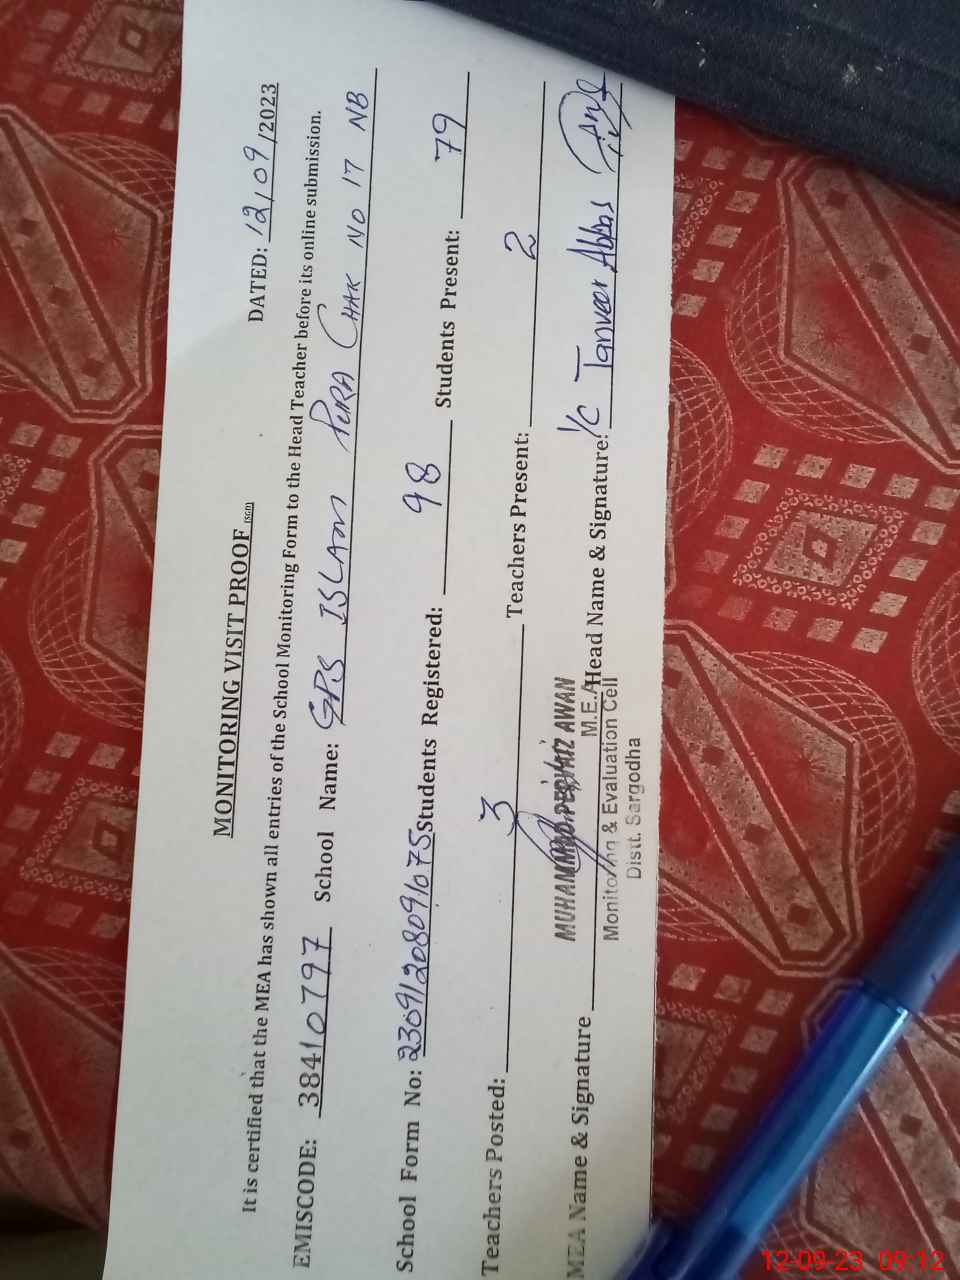 MONITORING VISIT PROOF (SGD)
DATED: 12/09/2023
It is certified that the MEA has shown all entries of the School Monitoring Form to the Head Teacher before its online submission.
EMISCODE: 38410797 School Name: GPS ISLAM PURA CHAK NO 17 NB
School Form No: 23091208091075 Students Registered: 98 Students Present: 79
Teachers Posted: 3 Teachers Present: 2
MEA Name & Signature MUHAMMAD PERVAIZ AWAN Head Name & Signature: I/C Tanveer Abbas
M.E.A
Monitoring & Evaluation Cell
Distt. Sargodha
12-09-23 09:12